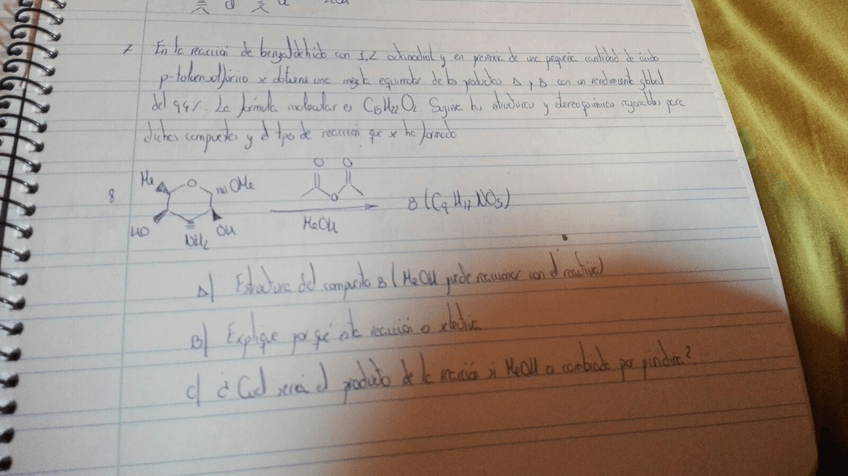 7 En la reacción de benzaldehído con 1,2 octanodiol y en presencia de una pequeña cantidad de ácido
p-toluensulfónico se obtiene una mezcla equimolar de los productos A y B con un rendimiento global
del 94%. La fórmula molecular es C15H22O2 Sugiere las estructuras y estereoquímica razonables para
dichos compuestos y el tipo de reacción que se ha formado
8 Me O OMe HO NH2 OH O O O MeOH B (C9H17NO5)
A) Estructura del compuesto B (MeOH puede reaccionar con el reactivo)
B) Explique por qué esta reacción es selectiva
C) ¿Cuál será el producto de la reacción si MeOH es cambiado por piridina?